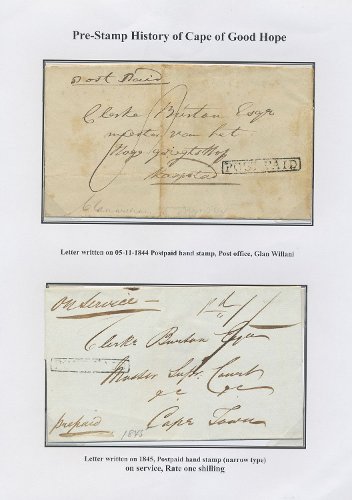 Pre-Stamp History of Cape of Good Hope
Post Paid
Clerke Burton Esqr
meester van het
Hooge geregtshof
Kaapstad
POST PAID
Letter written on 05-11-1844 Postpaid hand stamp, Post office, Glan Willani
on service
Clerke Burton Esqr
Master Supr. Court
&c &c
Cape Town
prepaid
1845
Letter written on 1845, Postpaid hand stamp (narrow type)
on service, Rate one shilling